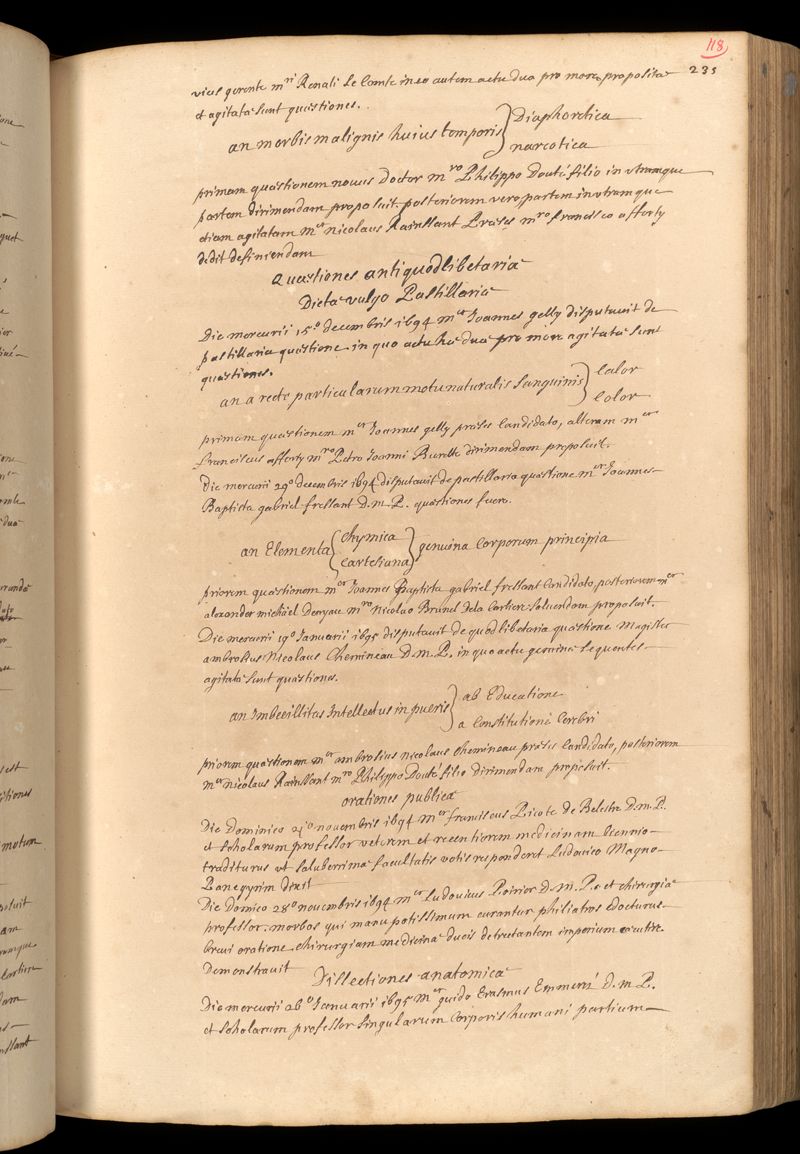 118
235
vices gerente mri Renati Le Comte in eo autem actu duæ pro more propositæ
et agitatæ sunt quæstiones.
an morbis malignis huius temporis } Diaphoretica
narcotica
primam quæstionem novus Doctor mro Philippo Douté filio in utramque
partem dirimendam proposuit. posteriorem vero partem in utramque
etiam agitatam mer Nicolaus Rainssant Præses mro francisco afforty
dedit definiendam
Quæstiones antiquodlibetariæ
Dictæ vulgo Pastillariæ
Die mercurii 15o decembris 1694 mer Joannes gelly disputavit de
pastillaria quæstione in quo actu hæ duæ pro more agitatæ sunt
quæstiones.
an a recto particularum motu naturalis sanguinis } Calor
Color
primam quæstionem mer Joannes gelly præses Candidato, alteram mer
franciscus afforty mro Petro Joanni Burette dirimendam proposuit.
Die mercurii 29o decembris 1694 disputavit de pastillaria quæstione mer Joannes
Baptista gabriel fressant D.m.P. quæstiones fuere.
an Elementa { Chymica } genuina Corporum principia
Cartesiana
priorem quæstionem mer Joannes Baptista gabriel fressant Candidato, posteriorem mer
alexander michäel Denyau mro Nicolao Brunel de la Carliere solvendam proposuit.
Die mercurii 19o Januarii 1695 disputavit de quodlibetaria quæstione Magister
ambrosius Nicolaus Chemineau D.m.P. in quo actu geminæ sequentes
agitatæ sunt quæstiones.
an Imbecillitas Intellectus in pueris } ab Educatione
a Constitutione Cerebri
priorem quæstionem mer ambrosius Nicolaus Chemineau præses Candidato, posteriorem
mer Nicolaus Rainssant mro Philippo Douté filio dirimendam proposuit.
orationes publicæ
Die Dominico 21o novembris 1694 mer franciscus Picote de Belestre D.m.P.
et scholarum professor veterem et recentiorem medicinam biennio
traditurus ut saluberrimæ facultatis votis responderet Ludovico Magno
Panegyrim dixit
Die Domico 28o novembris 1694 mer Ludovicus Poirier D.m.P. et chirurgiæ
professor. morbos qui manu potissimum curantur philiatros edocturus
brevi oratione chirurgiam medicinæ ducis detrectantem imperium cæcutire
Demonstravit
Dissectiones anatomicæ
Die mercurii 26o Januarii 1695 mer guido Erasmus Emmerés D.m.P.
et scholarum professor singularum Corporis humani partium